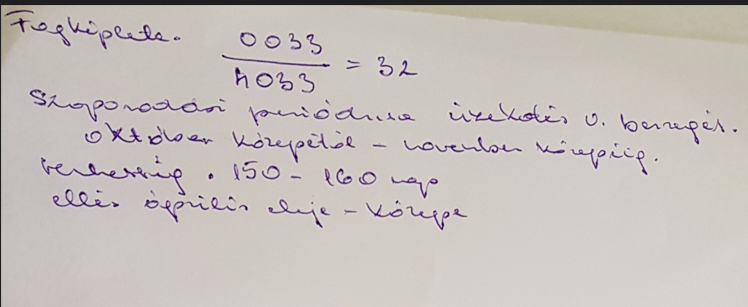 Fogképlete. 0033 / 4033 = 32
Szoporodási periódusa üzekedés v. berregés.
október közepétől - november közepéig.
terhesség . 150 - 160 nap
ellés április eleje - közepe